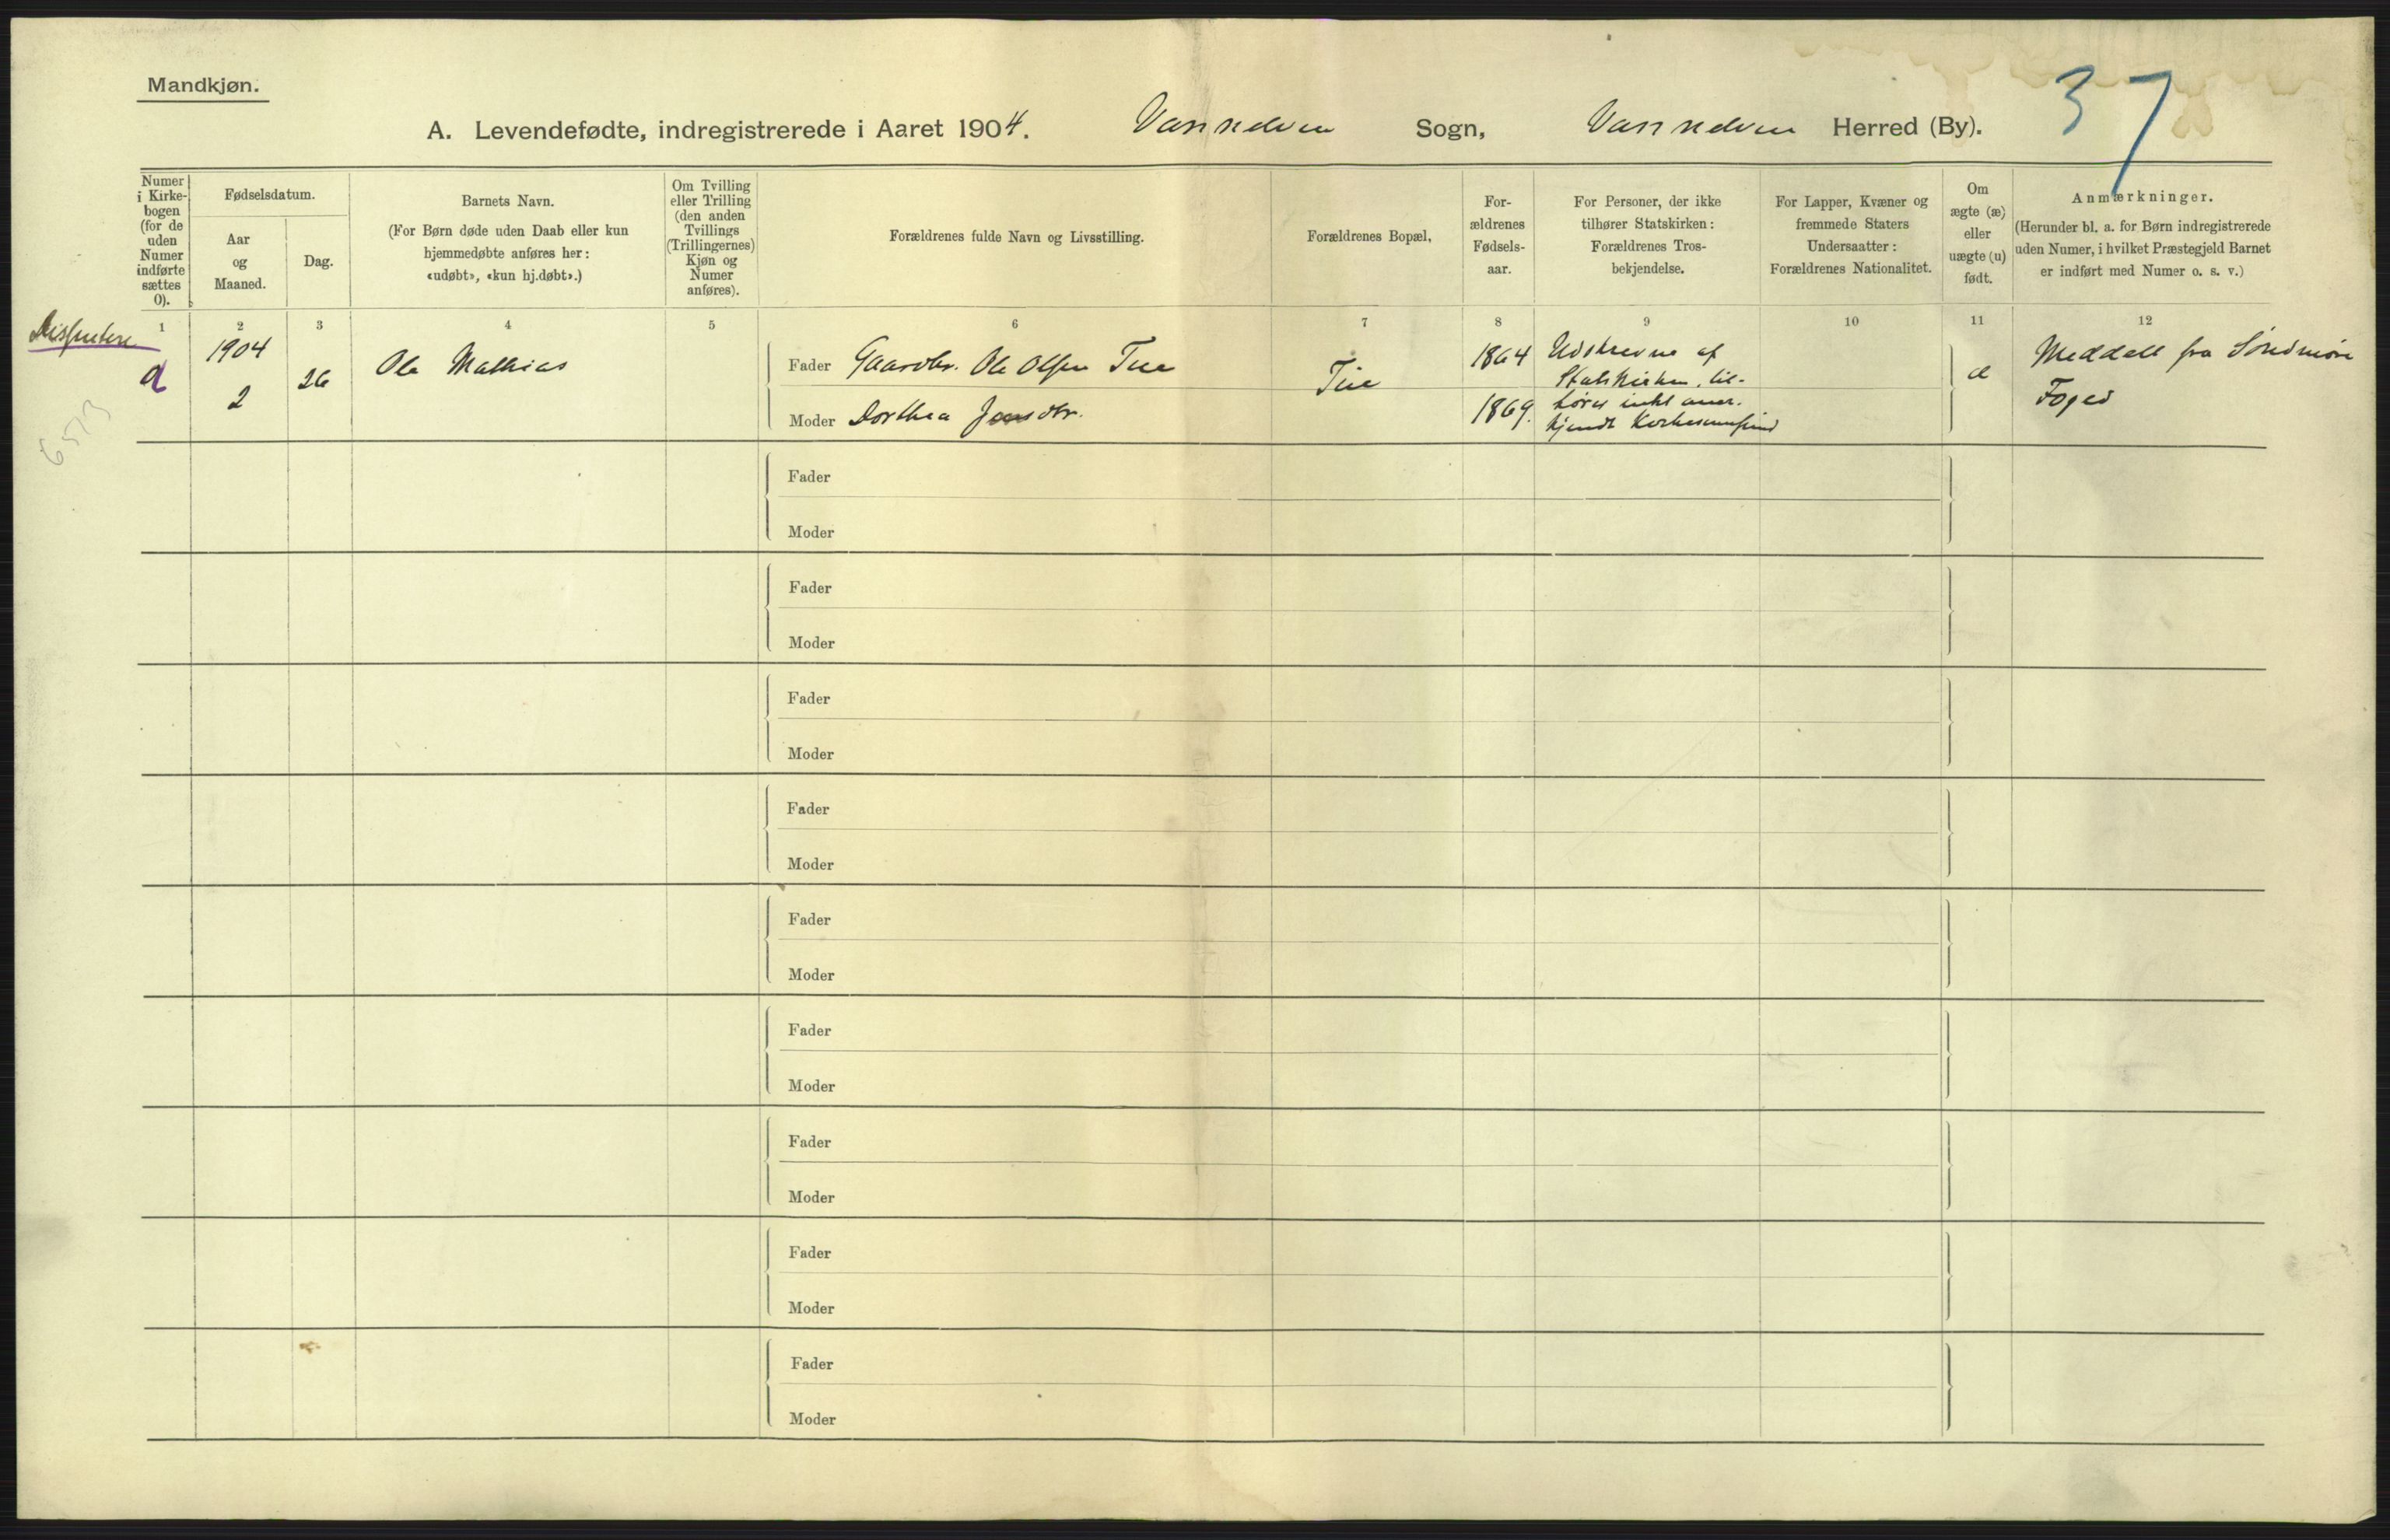 Mandkjøn.
37
A. Levendefødte, indregistrerede i Aaret 1904. Vannelven Sogn, Vannelven Herred (By).
Numer i Kirke-bogen (for de uden Numer indførte sættes 0).
Fødselsdatum.
Aar og Maaned.
Dag.
Barnets Navn.
(For Børn døde uden Daab eller kun
hjemmedøbte anføres her:
«udøbt», «kun hj.døbt».)
Om Tvilling
eller Trilling
(den anden
Tvillings
(Trillingernes)
Kjøn og
Numer
anføres).
Forældrenes fulde Navn og Livsstilling.
Forældrenes Bopæl,
For-
ældrenes
Fødsels-
aar.
For Personer, der ikke
tilhører Statskirken:
Forældrenes Tros-
bekjendelse.
For Lapper, Kvæner og
fremmede Staters
Undersaatter:
Forældrenes Nationalitet.
Om
ægte (æ)
eller
uægte (u)
født.
Anmærkninger.
(Herunder bl. a. for Børn indregistrerede
uden Numer, i hvilket Præstegjeld Barnet
er indført med Numer o. s. v.)
1 2 3 4 5 6 7 8 9 10 11 12
Dissentere
1904
2
26
Ole Mathias
Fader Gaardbr. Ole Olsen Tue
Moder Dorthea Jonsdtr.
Tue
1864
1869.
Udskrevne af
Statskirken, til-
hører intet aner-
kjendt Kirkesamfund
æ
Meddelt fra Søndmøre
Foged
Fader
Moder
Fader
Moder
Fader
Moder
Fader
Moder
Fader
Moder
Fader
Moder
Fader
Moder
Fader
Moder
Fader
Moder